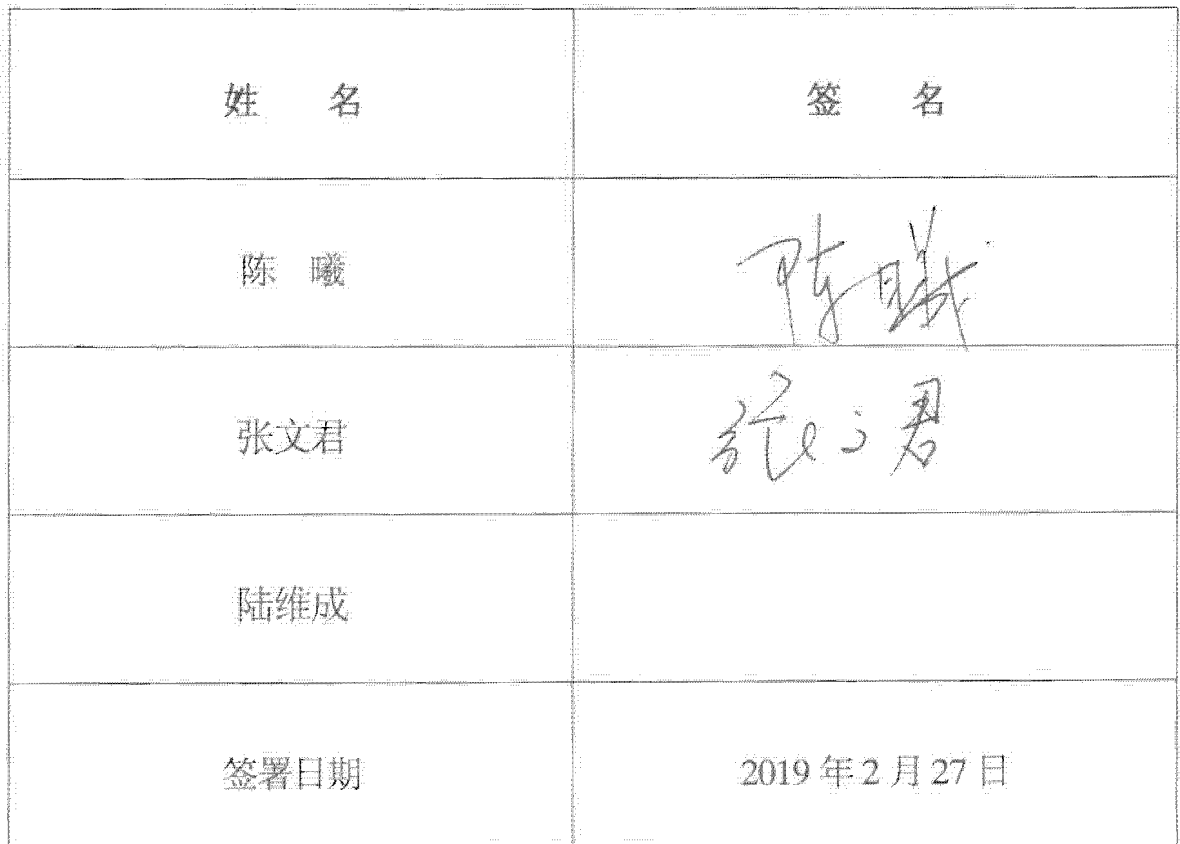 姓 名 签 名
陈 曦 陈曦
张文君 张文君
陆维成
签署日期 2019年2月27日